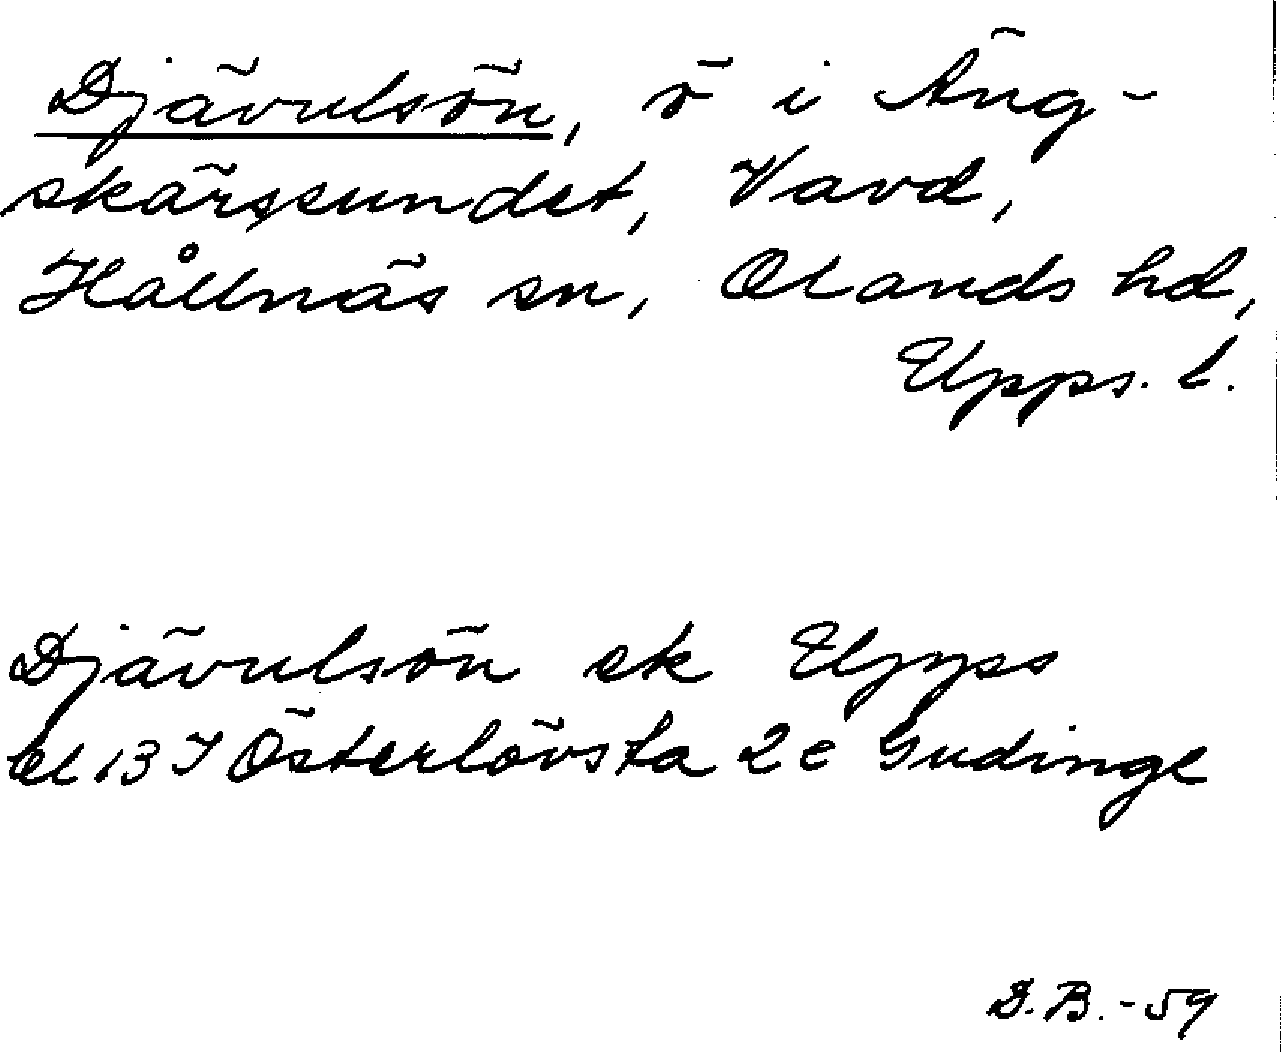 Djävulsön, ö i Äng-
skärssundet, Vavd,
Hållnäs sn, Olands hd,
Upps. l.
Djävulsön ek Upps
bl 13 I Österlövsta 2e Gudinge
D.B. -59